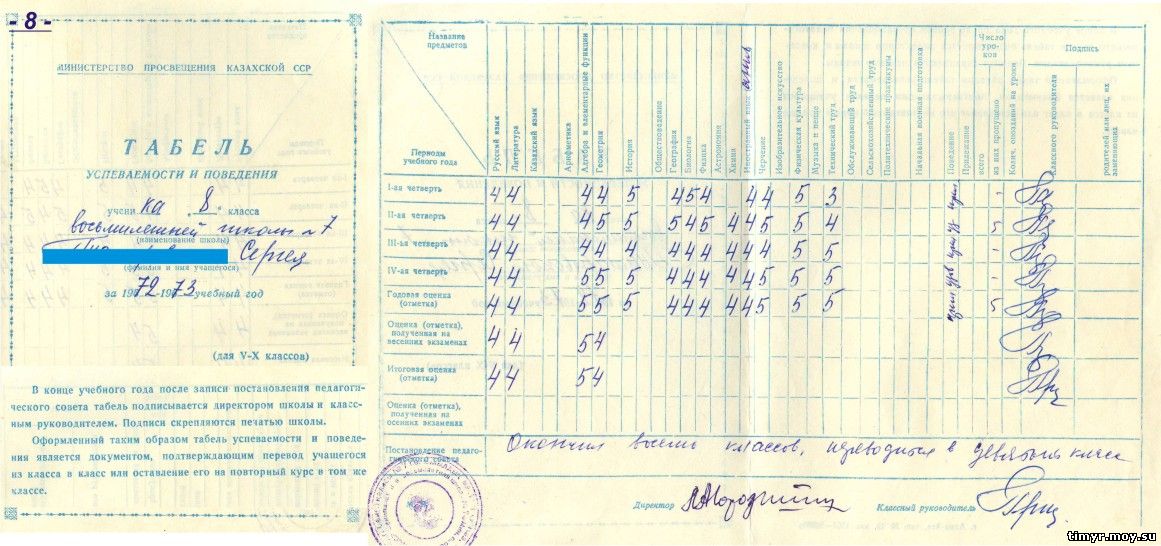 - 8 -
МИНИСТЕРСТВО ПРОСВЕЩЕНИЯ КАЗАХСКОЙ ССР
ТАБЕЛЬ
УСПЕВАЕМОСТИ И ПОВЕДЕНИЯ
учени ка „8“ класса
восьмилетней школы №7
(наименование школы)
Сергея
(фамилия и имя учащегося)
за 1972-1973 учебный год
(для V-X классов)
В конце учебного года после записи постановления педагоги-
ческого совета табель подписывается директором школы и класс-
ным руководителем. Подписи скрепляются печатью школы.
Оформленный таким образом табель успеваемости и поведе-
ния является документом, подтверждающим перевод учащегося
из класса в класс или оставление его на повторный курс в том же
классе.
Название
предметов
Периоды
учебного года
Русский язык
Литература
Казахский язык
Арифметика
Алгебра и элементарные функции
Геометрия
История
Обществоведение
География
Биология
Физика
Астрономия
Химия
Иностранный язык
Черчение
Изобразительное искусство
Физическая культура
Музыка и пение
Технический труд
Обслуживающий труд
Сельскохозяйственный труд
Политехнические практикумы
Начальная военная подготовка
Поведение
Прилежание
Число
уро-
ков
всего
из них пропущено
Колич. опозданий на уроки
Подпись
классного руководителя
родителей или лиц, их
заменяющих
I-ая четверть 4 4 4 4 5 4 5 4 4 4 5 3
II-ая четверть 4 4 4 5 5 5 4 5 4 4 5 5 4
III-ья четверть 4 4 4 4 4 4 4 4 4 4 4 5 5
IV-ая четверть 4 4 5 5 5 4 4 4 4 4 5 5 5
Годовая оценка
(отметка) 4 4 5 5 5 4 4 4 4 4 5 5 5 5
Оценка (отметка),
полученная на
весенних экзаменах 4 4 5 4
Итоговая оценка
(отметка) 4 4 5 4
Оценка (отметка),
полученная на
осенних экзаменах
Постановление педаго-
гического совета Окончил восемь классов, переводится в девятый класс
Директор
Классный руководитель
timyr.moy.su